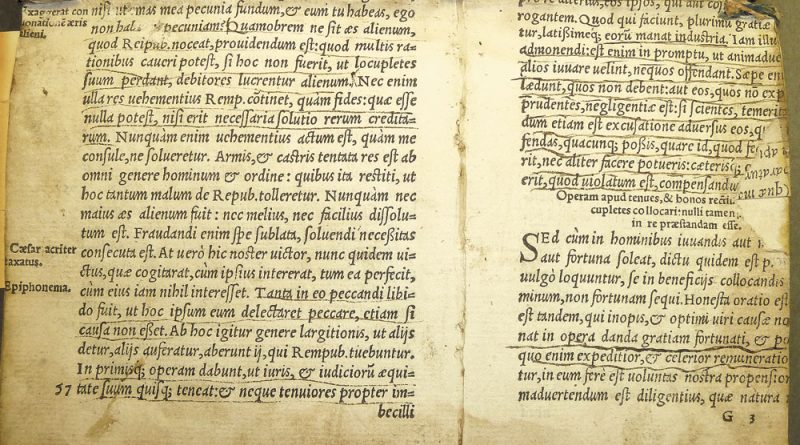 Exaggerat con
nisi ut mas mea pecunia fundum, & eum tu habeas, ego
non pecuniam? Quamobrem ne sit æs alienum,
alieni.
quod Reipub. noceat, prouidendum est: quod multis ra-
tionibus caueri potest, si hoc non fuerit, ut locupletes
suum perdant, debitores lucrentur alienum. Nec enim
ulla res uehementius Remp. cõtinet, quàm fides: quæ esse
nulla potest, nisi erit necessaria solutio rerum credita-
rum. Nunquàm enim uehementius actum est, quàm me
consule, ne solueretur. Armis, & castris tentata res est ab
omni genere hominum & ordine: quibus ita restiti, ut
hoc tantum malum de Repub. tolleretur. Nunquàm nec
maius æs alienum fuit: nec melius, nec facilius dissolu-
tum est. Fraudandi enim spe sublata, soluendi necessitas
Cæsar acriter
taxatus.
consecuta est. At uerò hic noster uictor, nunc quidem ui-
ctus, quæ cogitarat, cùm ipsius intererat, tum ea perfecit,
Epiphonema.
cùm eius iam nihil interesset. Tanta in eo peccandi libi-
do fuit, ut hoc ipsum eum delectaret peccare, etiam si
causa non esset. Ab hoc igitur genere largitionis, ut alijs
detur, alijs auferatur, aberunt ij, qui Rempub. tuebuntur.
In primisq; operam dabunt, ut iuris, & iudiciorũ æqui-
57 tate suum quisq; teneat: & neque tenuiores propter im-
becilli
eos ipsos, qui aut
rogantem. Quod qui faciunt, plurimũ gratiæ
tur, latißimeq; eorũ manat industria. Iam illu
admonendi: est enim in promptu, ut animadue
alios iuuare uelint, nequos offendant. Sæpe en
lædunt, quos non debent: aut eos, quos no exp
prudentes, negligentiæ est: si scientes, temerit
dum etiam est excusatione aduersus eos, q
fendas, quacunq; poßis, quare id, quod fe
rit, nec aliter facere potueris: cæterisq;
erit, quod uiolatum est, compensandu
Operam apud tenues, & bonos recti
cupletes collocari: nulli tamen
in re præstandam esse.
SEd cùm in hominibus iuuandis aut
aut fortuna soleat, dictu quidem est p
uulgò loquuntur, se in beneficijs collocandis
minum, non fortunam sequi. Honesta oratio est
est tandem, qui inopis, & optimi uiri causæ no
nat in opera danda gratiam fortunati, & po
quo enim expeditior, & celerior remuneratio
tur, in eum ferè est uoluntas nostra propensior
maduertendum est diligentius, quæ natura
G 3